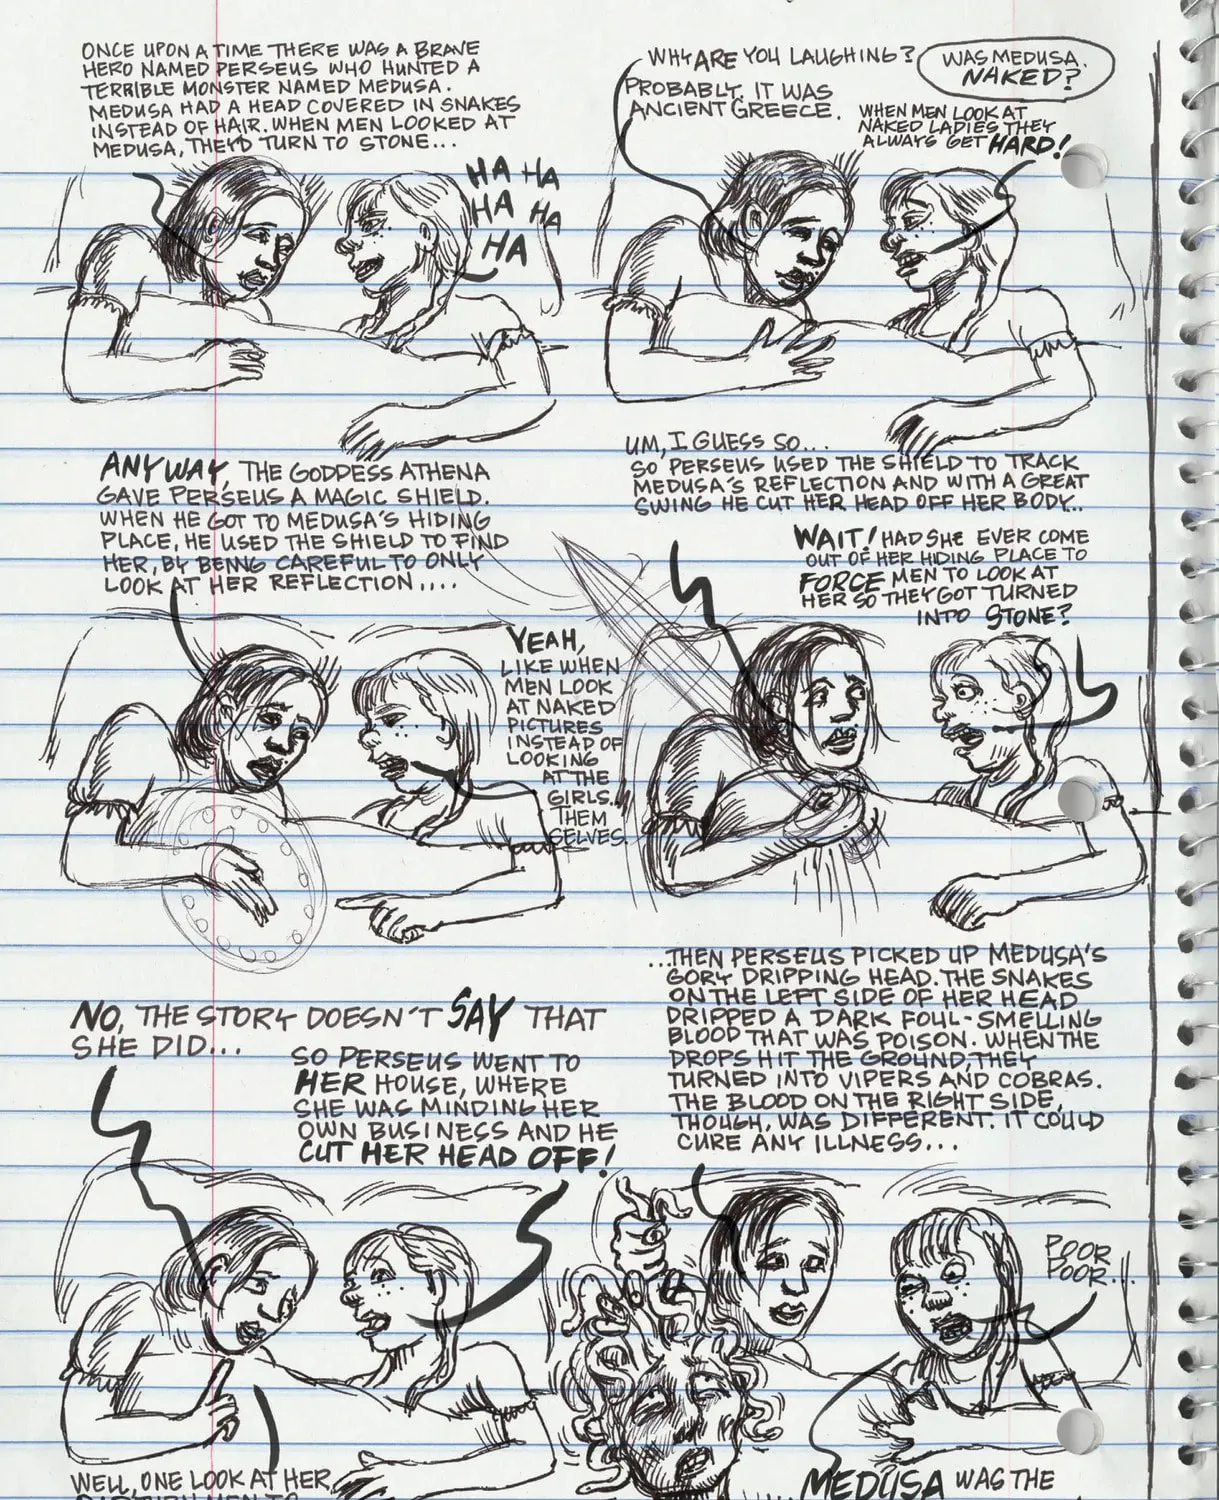 ONCE UPON A TIME THERE WAS A BRAVE
HERO NAMED PERSEUS WHO HUNTED A
TERRIBLE MONSTER NAMED MEDUSA.
MEDUSA HAD A HEAD COVERED IN SNAKES
INSTEAD OF HAIR. WHEN MEN LOOKED AT
MEDUSA, THEY'D TURN TO STONE...
HA HA
HA HA
HA
WHY ARE YOU LAUGHING?
WAS MEDUSA
NAKED?
PROBABLY. IT WAS
ANCIENT GREECE.
WHEN MEN LOOK AT
NAKED LADIES THEY
ALWAYS GET HARD!
ANYWAY, THE GODDESS ATHENA
GAVE PERSEUS A MAGIC SHIELD.
WHEN HE GOT TO MEDUSA'S HIDING
PLACE, HE USED THE SHIELD TO FIND
HER, BY BEING CAREFUL TO ONLY
LOOK AT HER REFLECTION....
YEAH,
LIKE WHEN
MEN LOOK
AT NAKED
PICTURES
INSTEAD OF
LOOKING
AT THE
GIRLS...
THEM
SELVES.
UM, I GUESS SO...
SO PERSEUS USED THE SHIELD TO TRACK
MEDUSA'S REFLECTION AND WITH A GREAT
SWING HE CUT HER HEAD OFF HER BODY...
WAIT! HAD SHE EVER COME
OUT OF HER HIDING PLACE TO
FORCE MEN TO LOOK AT
HER SO THEY GOT TURNED
INTO STONE?
NO, THE STORY DOESN'T SAY THAT
SHE DID...
SO PERSEUS WENT TO
HER HOUSE, WHERE
SHE WAS MINDING HER
OWN BUSINESS AND HE
CUT HER HEAD OFF!
WELL, ONE LOOK AT HER,
...THEN PERSEUS PICKED UP MEDUSA'S
GORY DRIPPING HEAD. THE SNAKES
ON THE LEFT SIDE OF HER HEAD
DRIPPED A DARK FOUL-SMELLING
BLOOD THAT WAS POISON. WHEN THE
DROPS HIT THE GROUND, THEY
TURNED INTO VIPERS AND COBRAS.
THE BLOOD ON THE RIGHT SIDE,
THOUGH, WAS DIFFERENT. IT COULD
CURE ANY ILLNESS...
POOR
POOR...
MEDUSA WAS THE